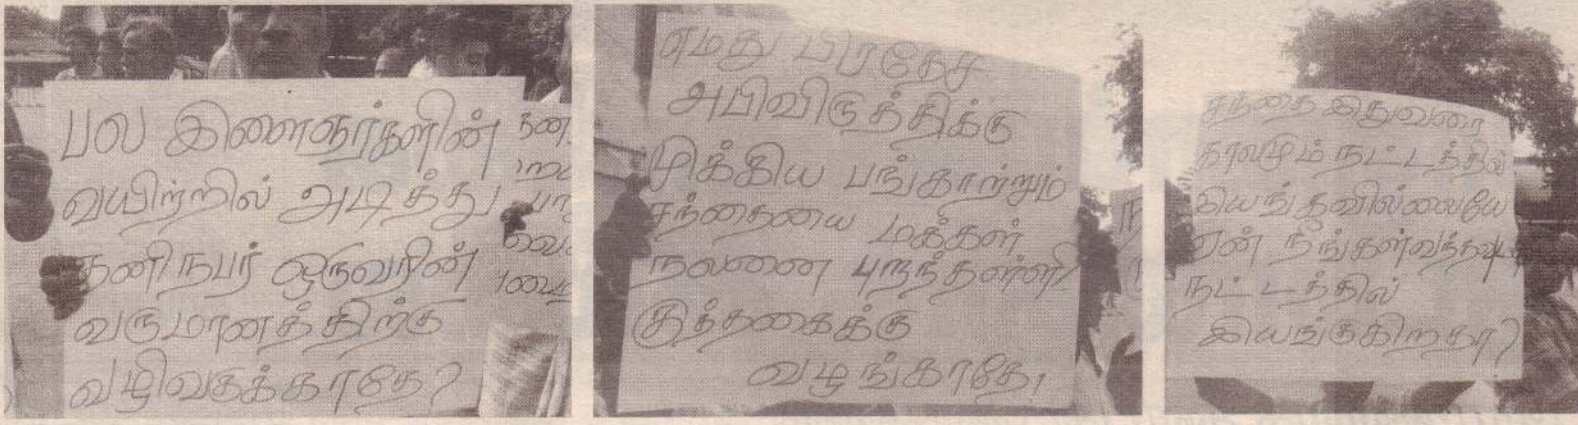 பல இளைஞர்களின்
வயிற்றில் அடித்து
தனிநபர் ஒருவரின்
வருமானத்திற்கு
வழிவகுக்காதே?
எமது பிரதேச
அபிவிருத்திக்கு
முக்கிய பங்காற்றும்
சந்தையை மக்கள்
நலனை புறந்தள்ளி
குத்தகைக்கு
வழங்காதே,
சந்தை இதுவரை
காலமும் நட்டத்தில்
இயங்கவில்லையே
ஏன் நீங்கள் வந்தவுடன்
நட்டத்தில்
இயங்குகிறதா?